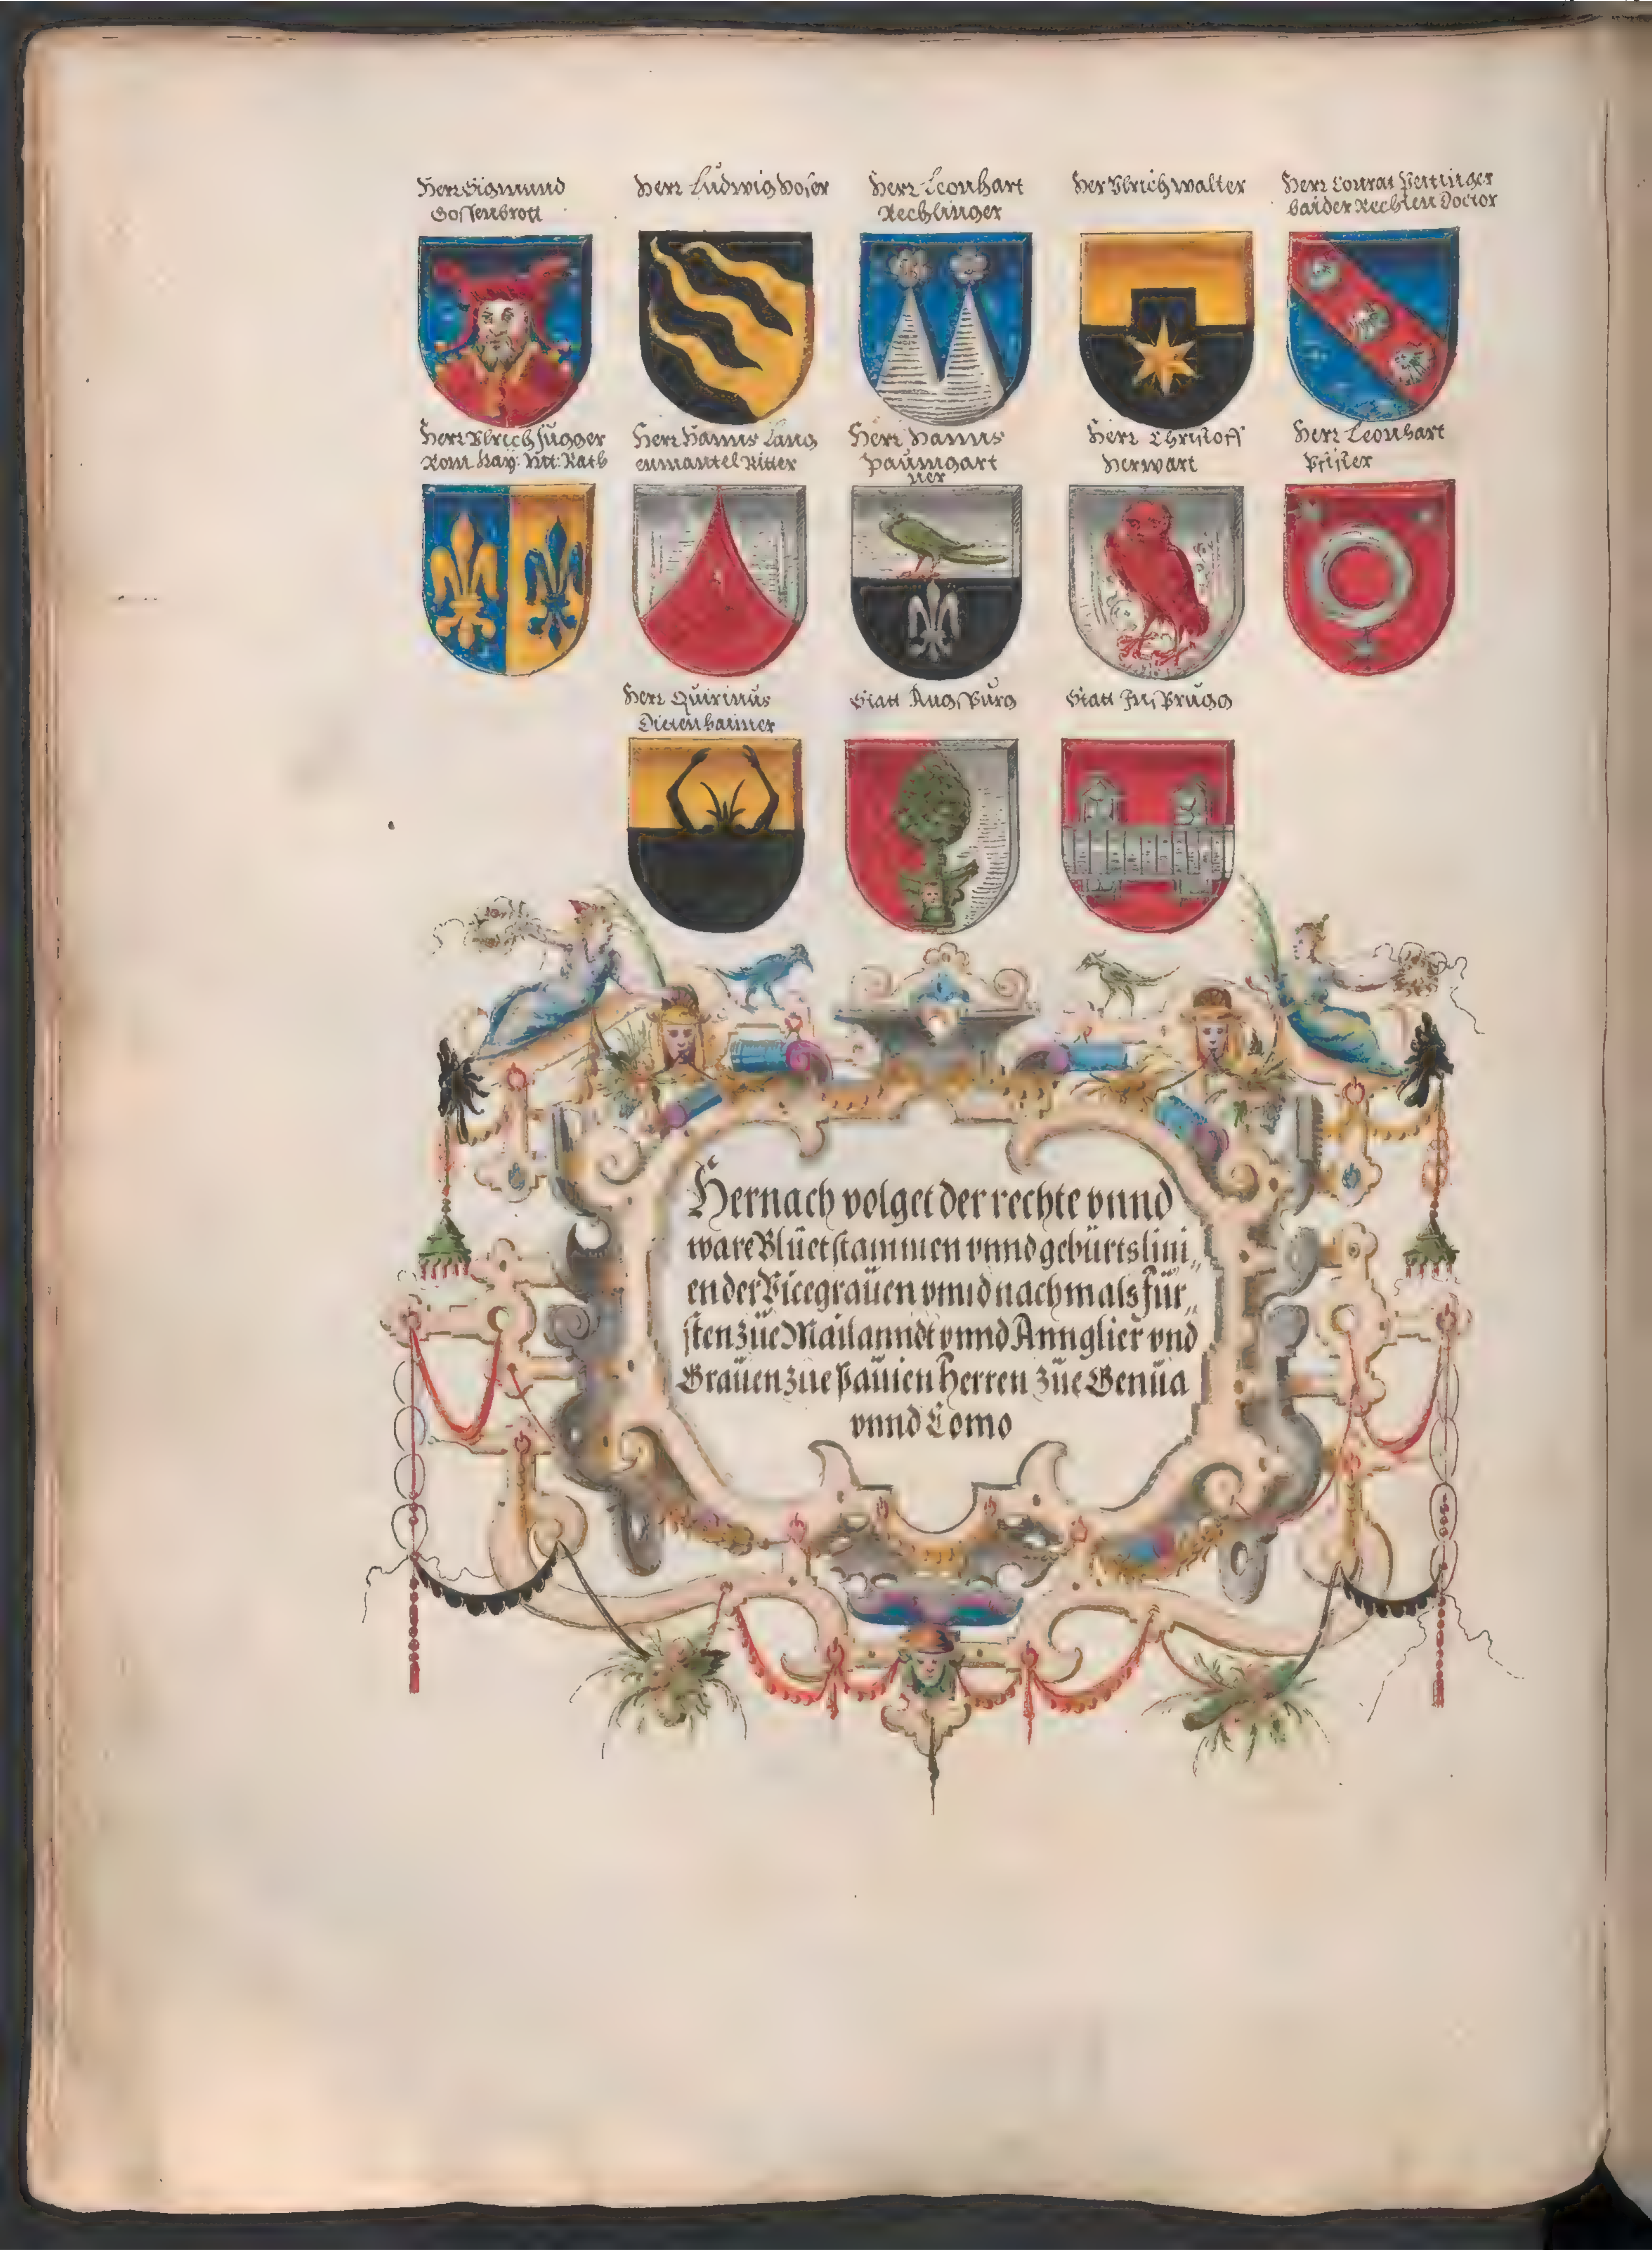 Herr Sigmund
Gossenbrott
Herr Ludwig Hoser
Herr Leonhart
Rechlinger
Her Vlrich walter
Herr Conrat Peutinger
baider Rechten Doctor
Herr Vlrich Fugger
Rom: Kay: Mt: Rath
Herr Hanns Lang
enmantel Ritter
Herr Hanns
Paumgart
ner
Herr Christoff
Herwart
Herr Leonhart
Pfister
Herr Quirinus
Statt Augspurg
Statt Insprugg
Hernach volget der rechte vnnd
ware Blüetstammen vnnd gebürtslini„
en der Vicegrauen vnnd nachmals für„
sten züe Mailanndt vnnd Annglier vnd
Grauen zue Pauien Herren züe Genüa
vnnd Como